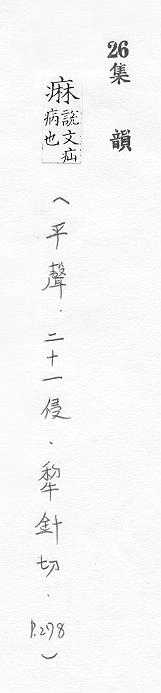 26集韻
痳說文疝病也
(平聲．二十一侵．犂針切．P.278)